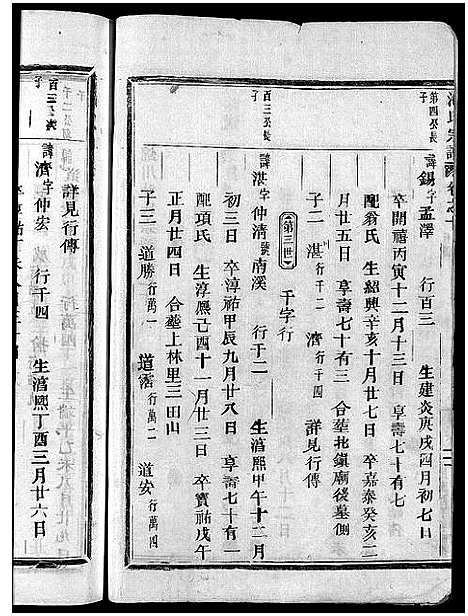 氏宗譜 卷之十
第四公長子
諱錫 字孟澤 行百三 生建炎庚戌四月初七日
卒開禧丙寅十二月十三日 享壽七十有七
配翁氏 生紹興辛亥十月廿七日 卒嘉泰癸亥二
月廿五日 享壽七十有三 合葬北鎮廟後墓側
子二 湛行千二 濟行千四 詳見行傳
第三世 千字行
百三公長子
諱湛 字仲清 號南溪 行千二 生淳熙甲午十二月
初三日 卒淳祐甲辰九月廿八日 享壽七十有一
配項氏 生淳熙己四十一月廿三日 卒寶祐戊午
正月廿四日 合葬上林里三田山
子三 道勝行萬一 道活行萬二 道安行萬四
詳見行傳
百三公次子
諱濟 字仲宏 行千四 生淳熙丁酉三月廿六日